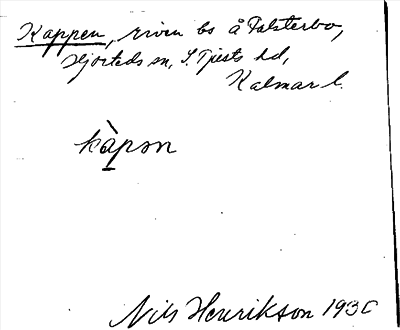 Kappen, riven bs å Falsterbo,
Hjorteds sn, S. Tjusts hd,
Kalmar l.
kàpən
Nils Henrikson 1930